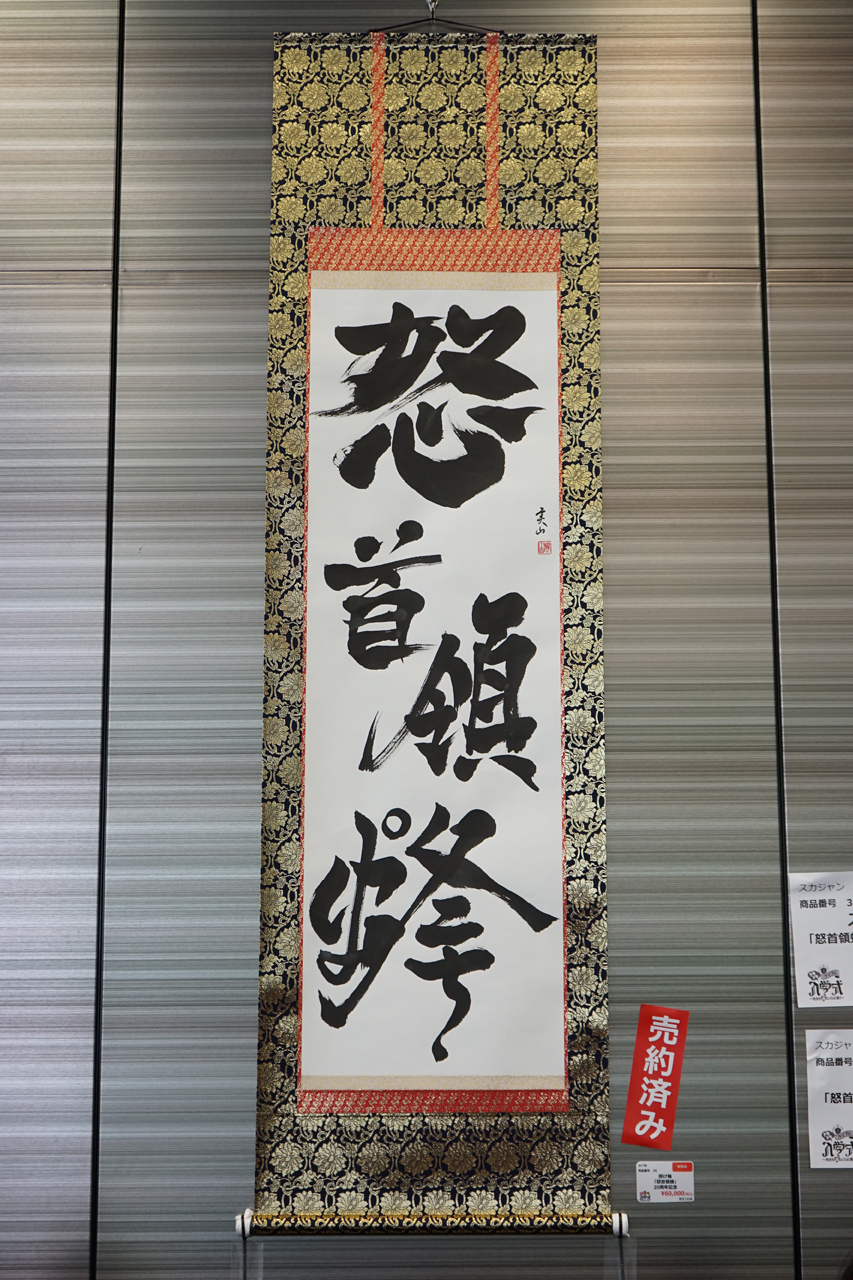 怒
首
領
蜂
売約済み
掛け軸
「怒首領蜂」
20周年記念
¥60,000
スカジャン
商品番号 3
「怒首領蜂
入学式
スカジャ
商品番号
「怒首
入学式